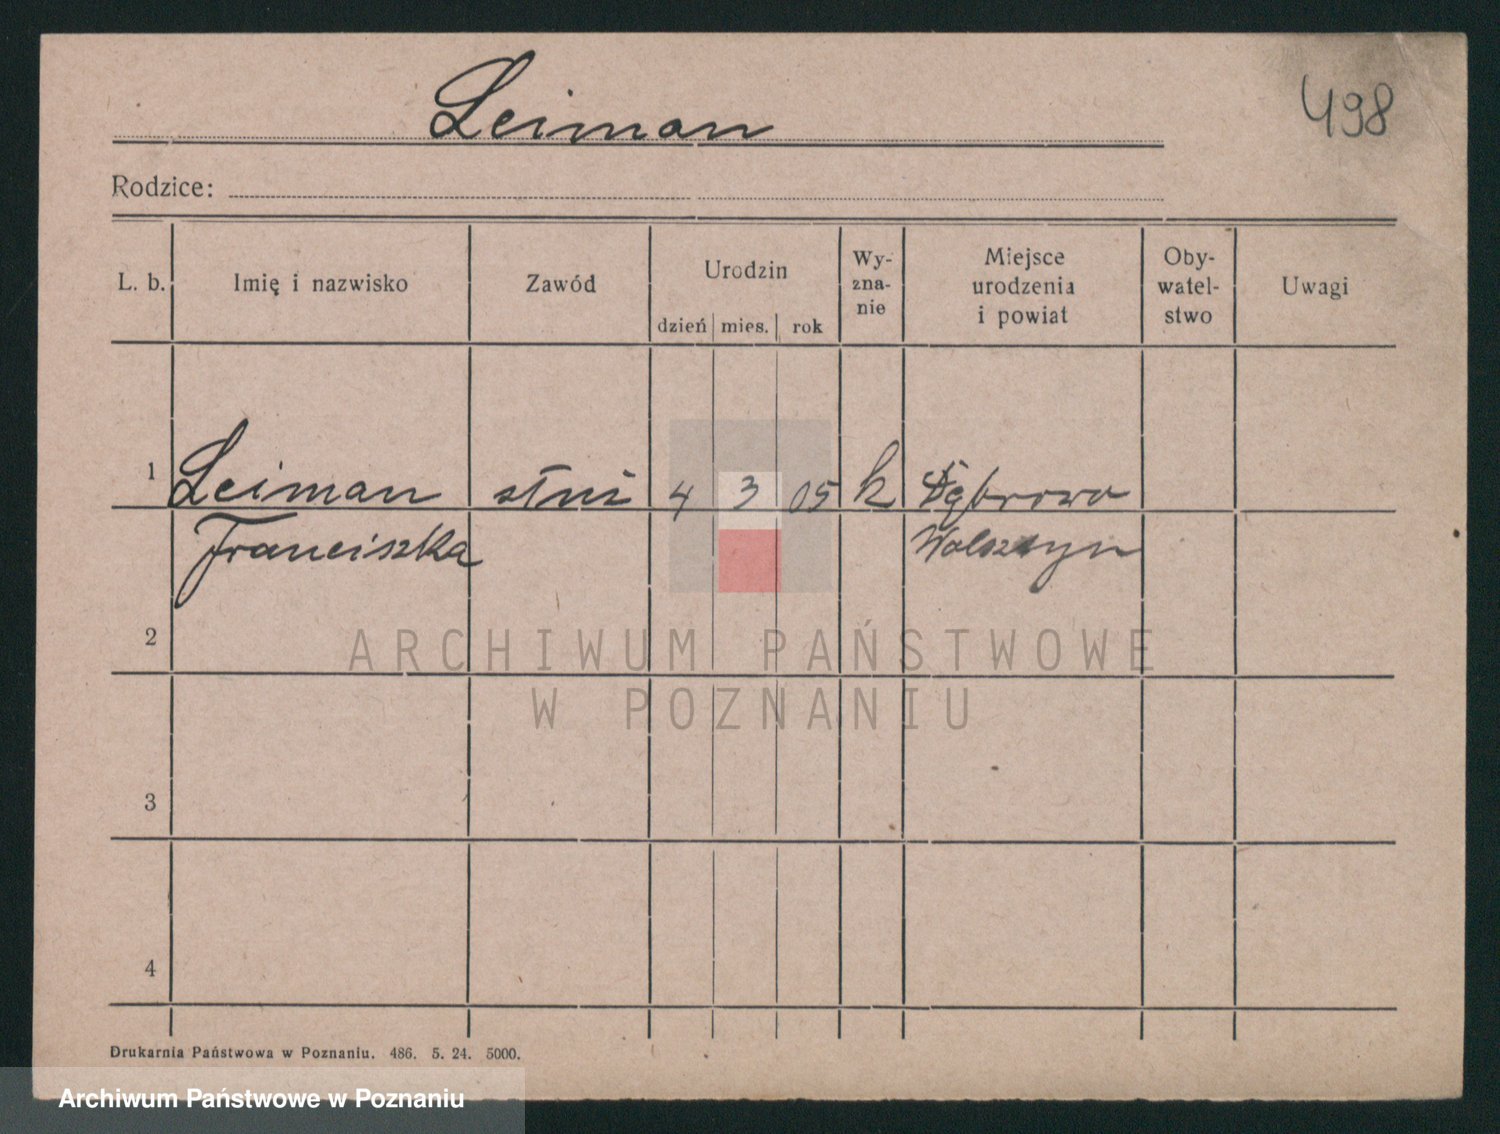 498
Leiman
Rodzice:
L. b. Imię i nazwisko Zawód Urodzin dzień mies. rok Wy-zna-nie Miejsce urodzenia i powiat Oby-watel-stwo Uwagi
1 Leiman służ 4 3 05 k Dąbrowa
Franciszka Wolsztyn
2
3
4
ARCHIWUM PAŃSTWOWE
W POZNANIU
Drukarnia Państwowa w Poznaniu. 486. 5. 24. 5000.
Archiwum Państwowe w Poznaniu